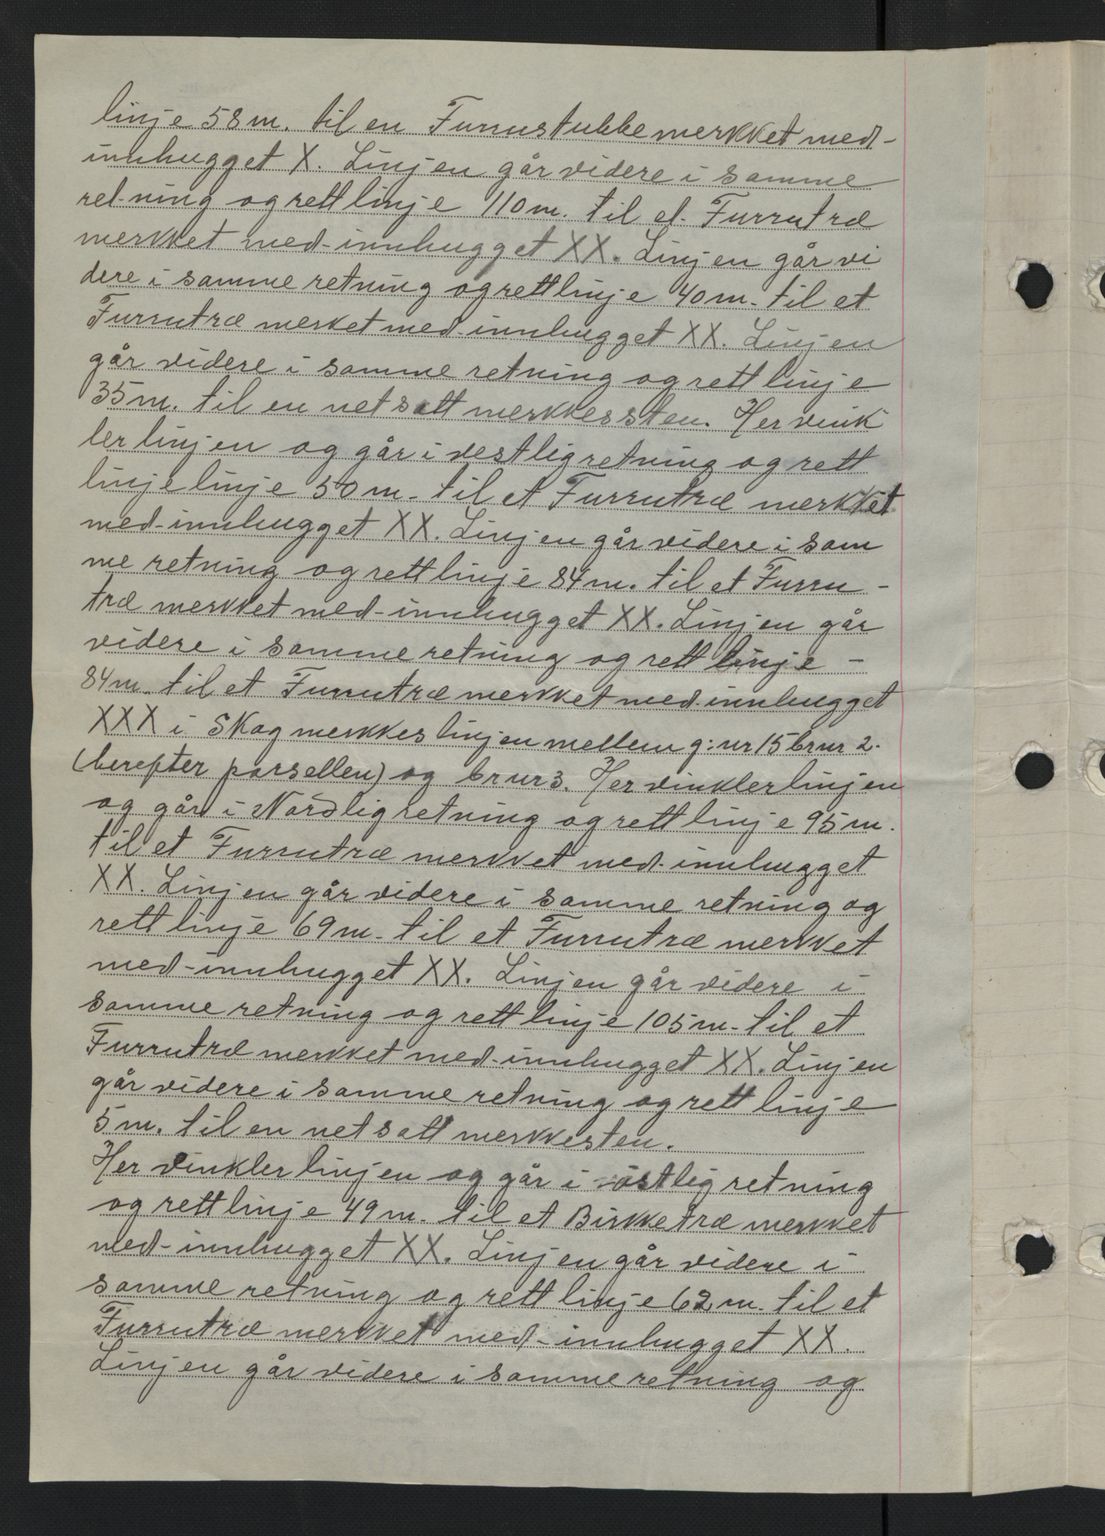 linje 58 m. til en Furrustubbe merkket med-
innhugget X. Linjen går videre i samme
retning og rett linje 110 m. til et Furrutræ
merkket med-innhugget XX. Linjen går vi
dere i samme retning og rett linje 40 m. til et
Furrutræ merket med-innhugget XX. Linjen
går videre i samme retning og rett linje
35 m. til en netsatt merkkessten. Her vink
ler linjen og går i vestlig retning og rett
linje linje 50 m. til et Furrutræ merkket
med-innhugget XX. Linjen går videre i sam
me retning og rett linje 84 m. til et Furru-
træ merkket med-innhugget XX. Linjen går
videre i samme retning og rett linje -
84 m. til et Furrutræ merkket med-innhugget
XXX i Skogmerkkeslinjen mellem g: nr 15 brnr 2.
(berefter parsellen) og brnr 3. Her vinkler linjen
og går i Nordlig retning og rett linje 95 m.
til et Furrutræ merkket med-innhugget
XX. Linjen går videre i samme retning og
rett linje 69 m. til et Furrutræ merkket
med-innhugget XX. Linjen går videre i
samme retning og rett linje 105 m. til et
Furrutræ merkket med-innhugget XX. Linjen
går videre i samme retning og rett linje
5 m. til en netsatt merkkesten.
Her vinkler linjen og går i østlig retning
og rett linje 49 m. til et Birkketræ merkket
med-innhugget XX. Linjen går videre i
samme retning og rett linje 62 m. til et
Furrutræ merkket med-innhugget XX.
Linjen går videre i samme retning og